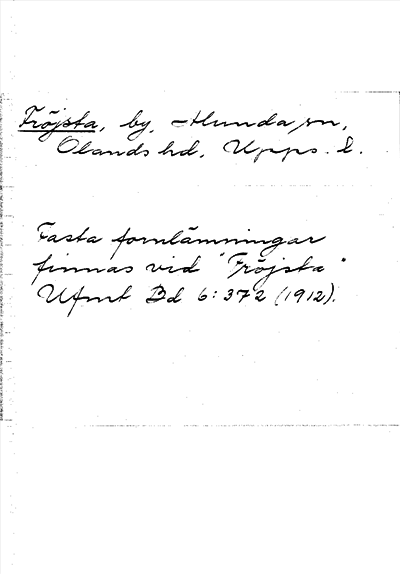 Fröjsta, by, Alunda sn,
Olands hd, Upps. l.
Fasta fornlämningar
finnas vid "Fröjsta"
Ufmt Bd 6:372 (1912).